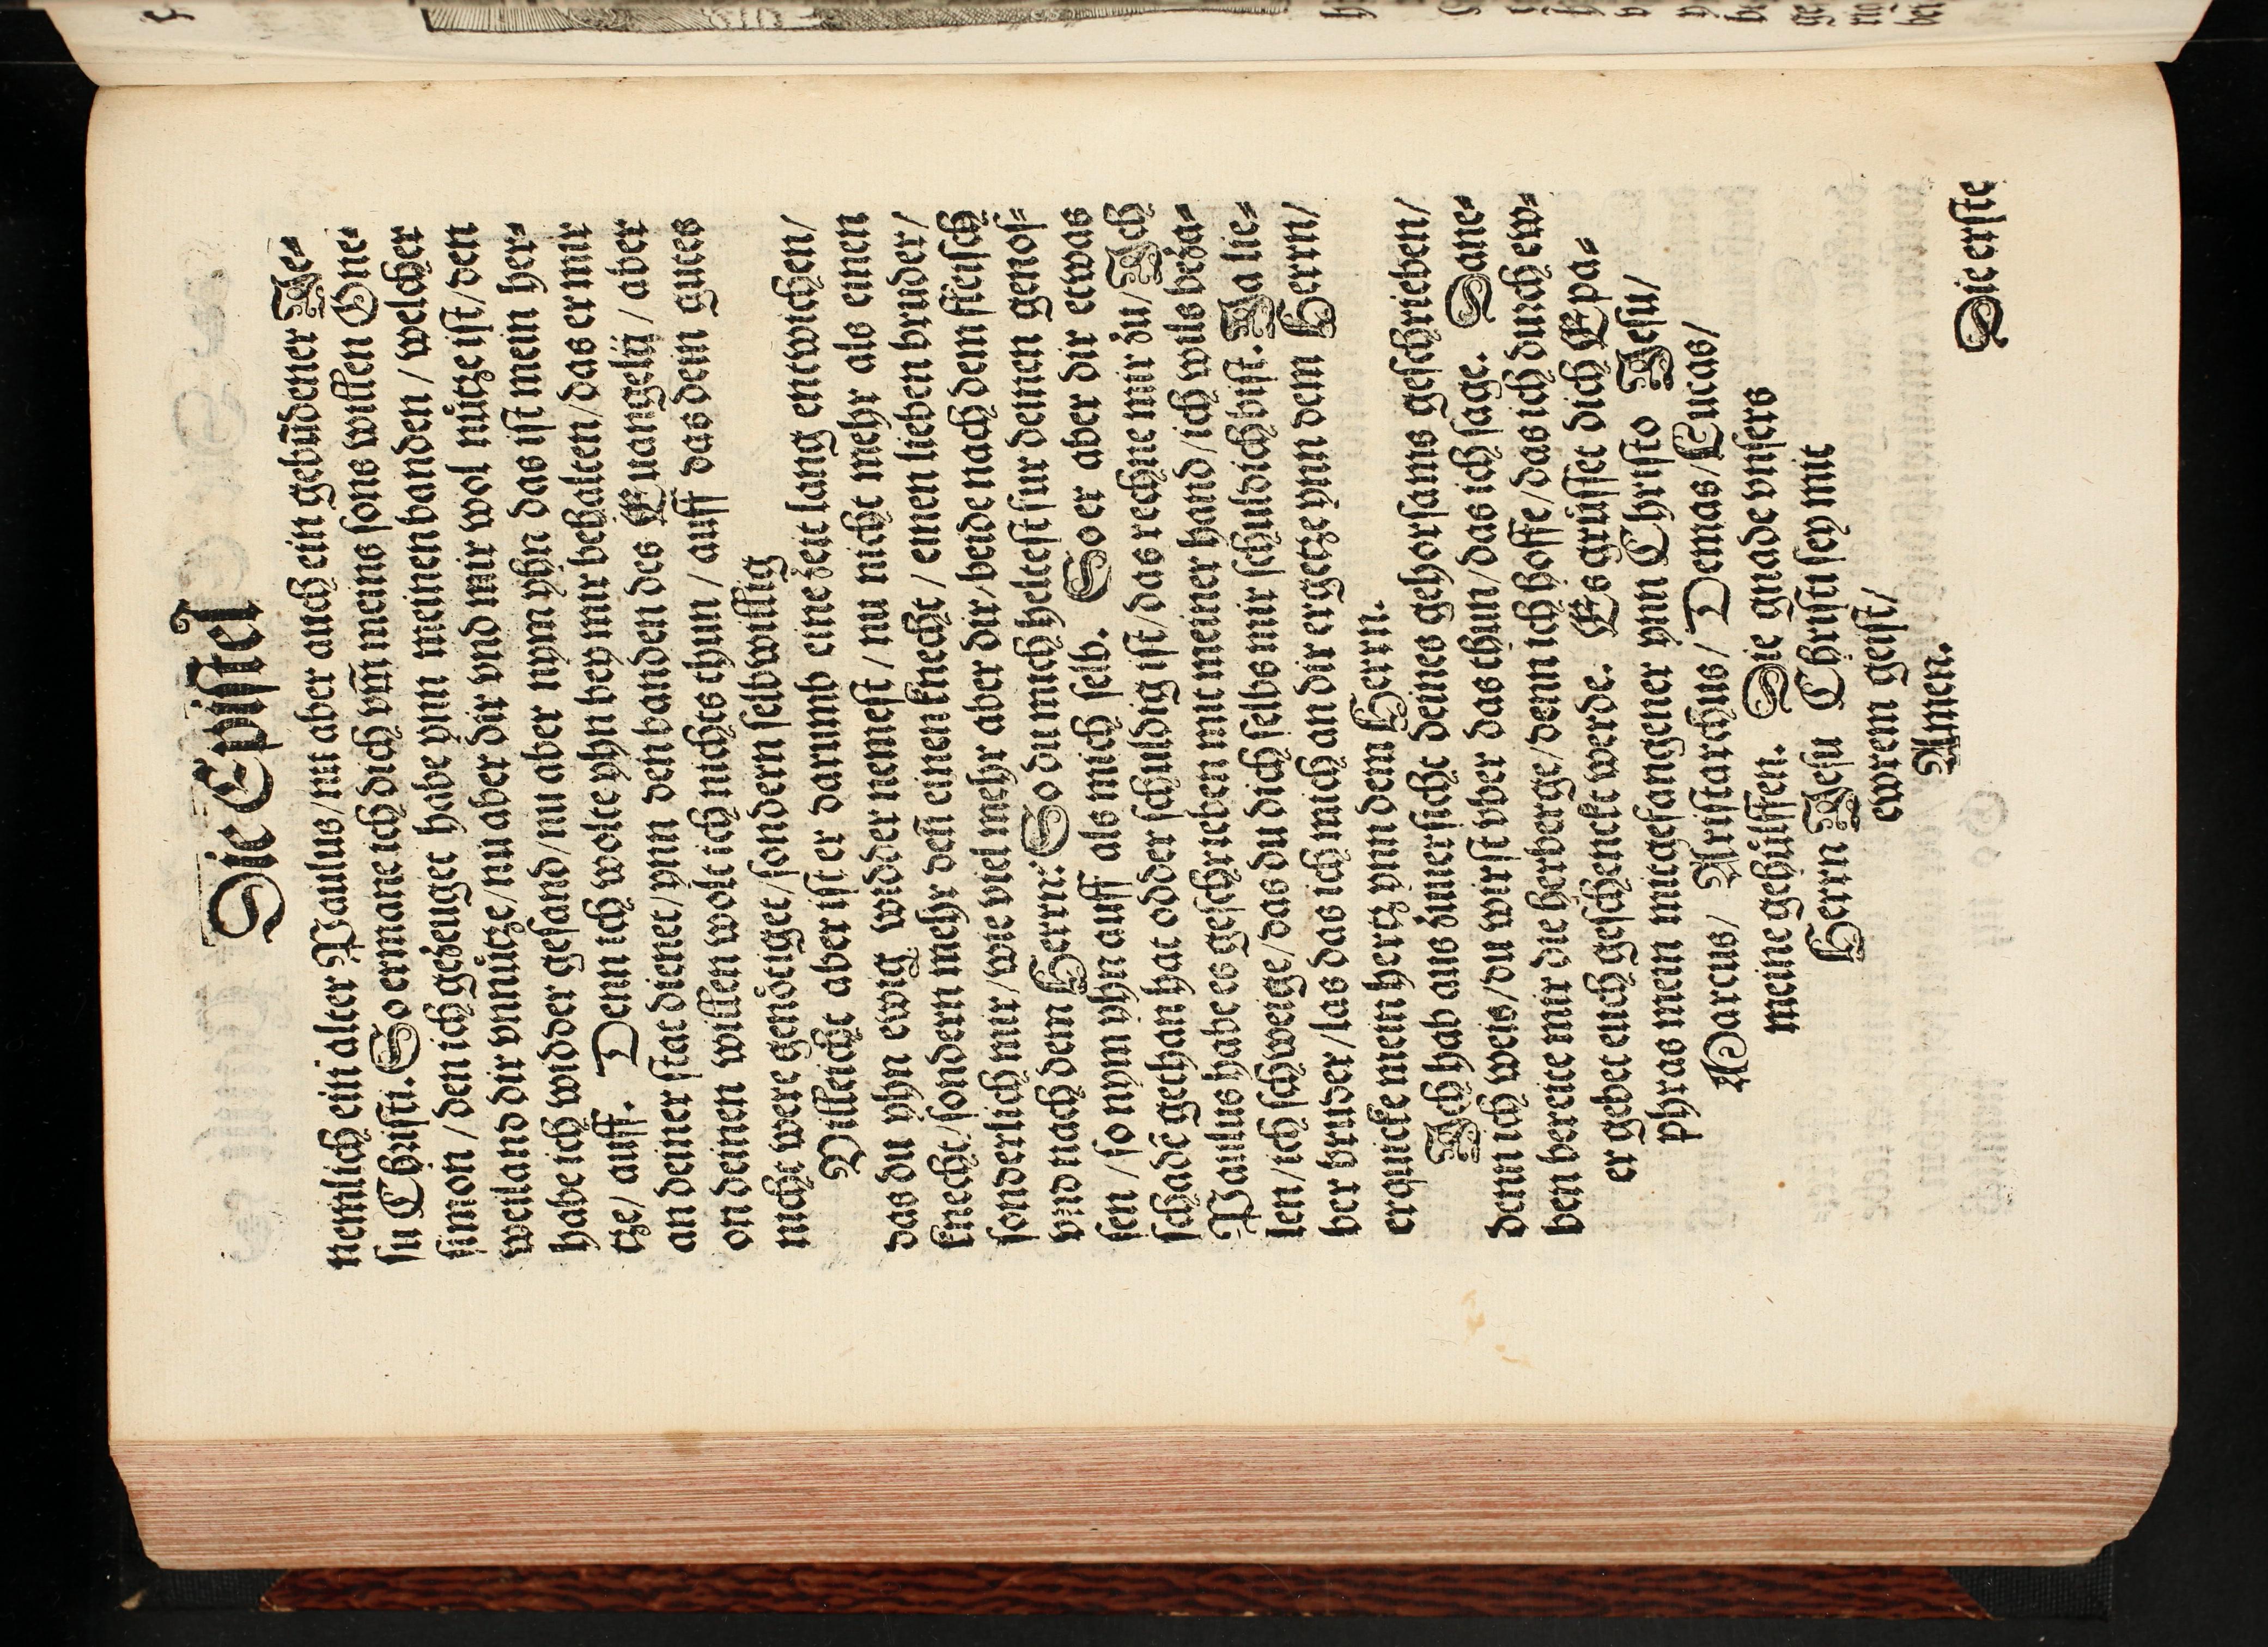 Die Epistel
nemlich ein alter Paulus/nu aber auch ein gebũdener Je⸗
su Christi. So ermane ich dich vm̃ meins sons willen One⸗
simon / den ich gezeuget habe ynn meinen banden / welcher
weiland dir vnnůtze/nu aber dir vnd mir wol nůtze ist/den
habe ich widder gesand/nu aber nym yhn das ist mein her⸗
tze/ auff. Denn ich wolte yhn bey mir behalten/das er mir
an deiner stat dienet/ynn den banden des Euangelij / aber
on deinen willen wolt ich nichts thun / auff das dein gutes
nicht were genötiget/sondern selbwillig
Villeicht aber ist er darumb eine zeit lang entwichen/
das du yhn ewig widder nemest / nu nicht mehr als einen
knecht/sondern mehr deñ einen knecht / einen lieben bruder/
sonderlich mir/wie viel mehr aber dir/beide nach dem fleisch
vnd nach dem Herrn: So du mich heltest fur deinen genos⸗
sen / so nym yhn auff als mich selb. So er aber dir etwas
schadẽ gethan hat odder schuldig ist/das rechne mir zu/Ich
Paulus habe es geschrieben mit meiner hand/ich wils beza⸗
len/ich schweige/das du dich selbs mir schuldich bist. Ja lie⸗
ber bruder/las das ich mich an dir ergetze ynn dem Herrn/
erquicke mein hertz ynn dem Herrn.
Ich hab aus zuuersicht deines gehorsams geschrieben/
denn ich weis/du wirst vber das thun/das ich sage. Dane⸗
ben bereite mir die herberge/denn ich hoffe/das ich durch ew⸗
er gebet euch geschenckt werde. Es grůsset dich Epa⸗
phras mein mitgefangener ynn Christo Jesu/
Marcus/ Aristarchus/ Demas/Lucas/
meine gehůlffen. Die gnade vnsers
Herrn Jesu Christi sey mit
ewrem geist/
Amen.
Die erste